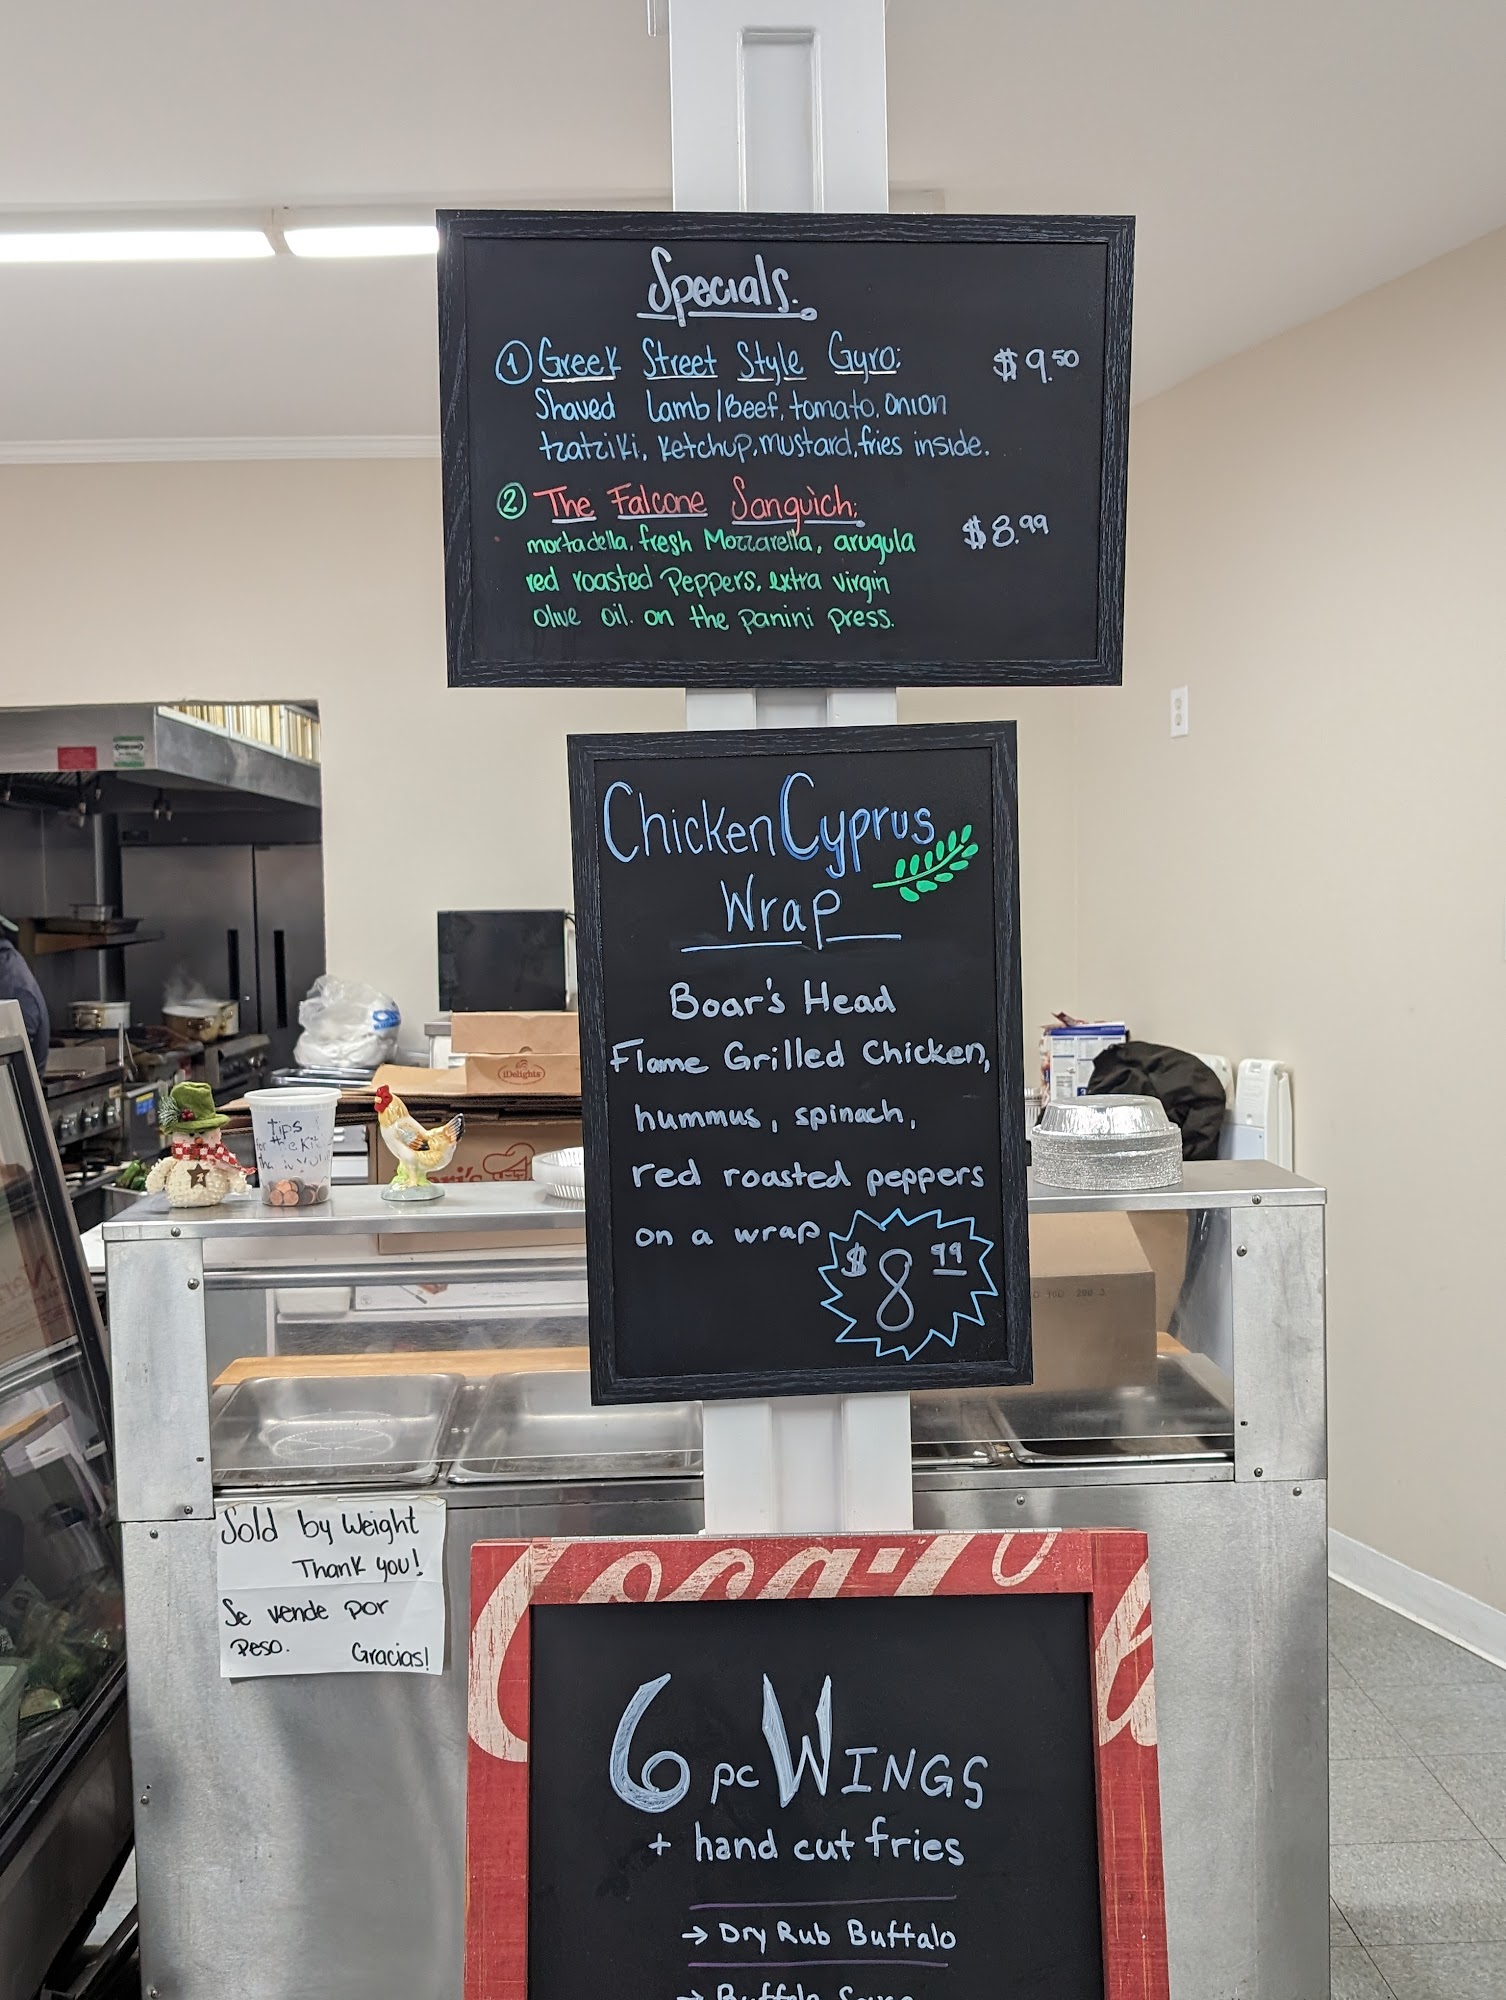 Specials.
① Greek Street Style Gyro: $9.50
Shaved Lamb/Beef, tomato, onion
tzatziki, ketchup, mustard, fries inside.
② The Falcone Sanguich: $8.99
mortadella, fresh Mozzarella, arugula
red roasted Peppers, extra virgin
olive oil. on the panini press.
Chicken Cyprus
Wrap
Boar's Head
Flame Grilled Chicken,
hummus, spinach,
red roasted peppers
on a wrap
$8.99
iDelights
tips
for the kit
Sold by Weight
Thank you!
Se vende por
Peso. Gracias!
Coca-Co
6 pc WINGS
+ hand cut fries
→ Dry Rub Buffalo
→ Buffalo Sauce